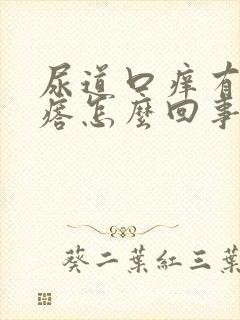 尿道口痒有
痞怎麼回事
葵二葉紅三葉